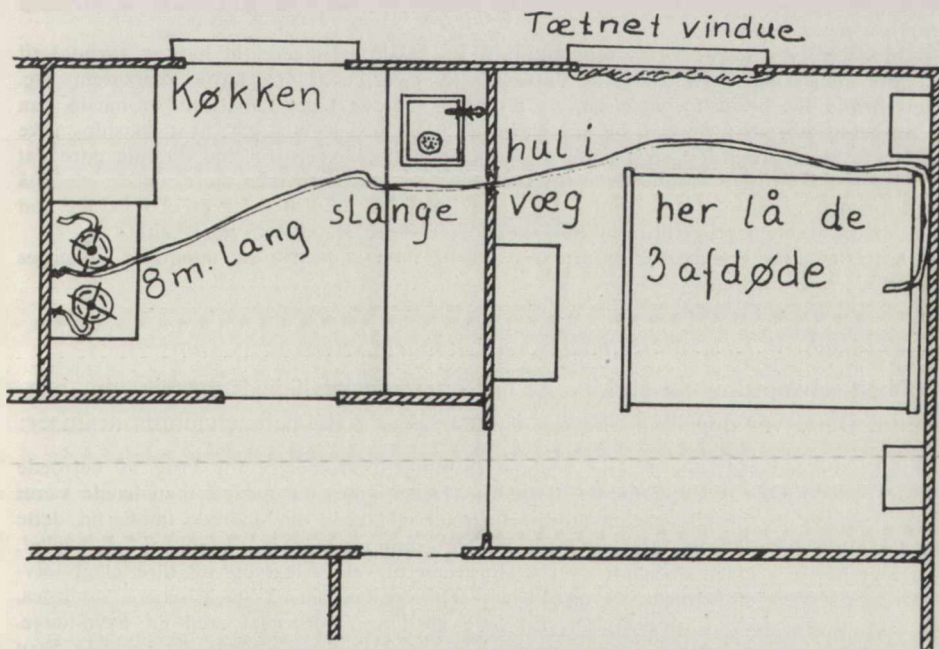 Tætnet vindue
Køkken
hul i
væg
slange
8 m. lang
her lå de
3 afdøde